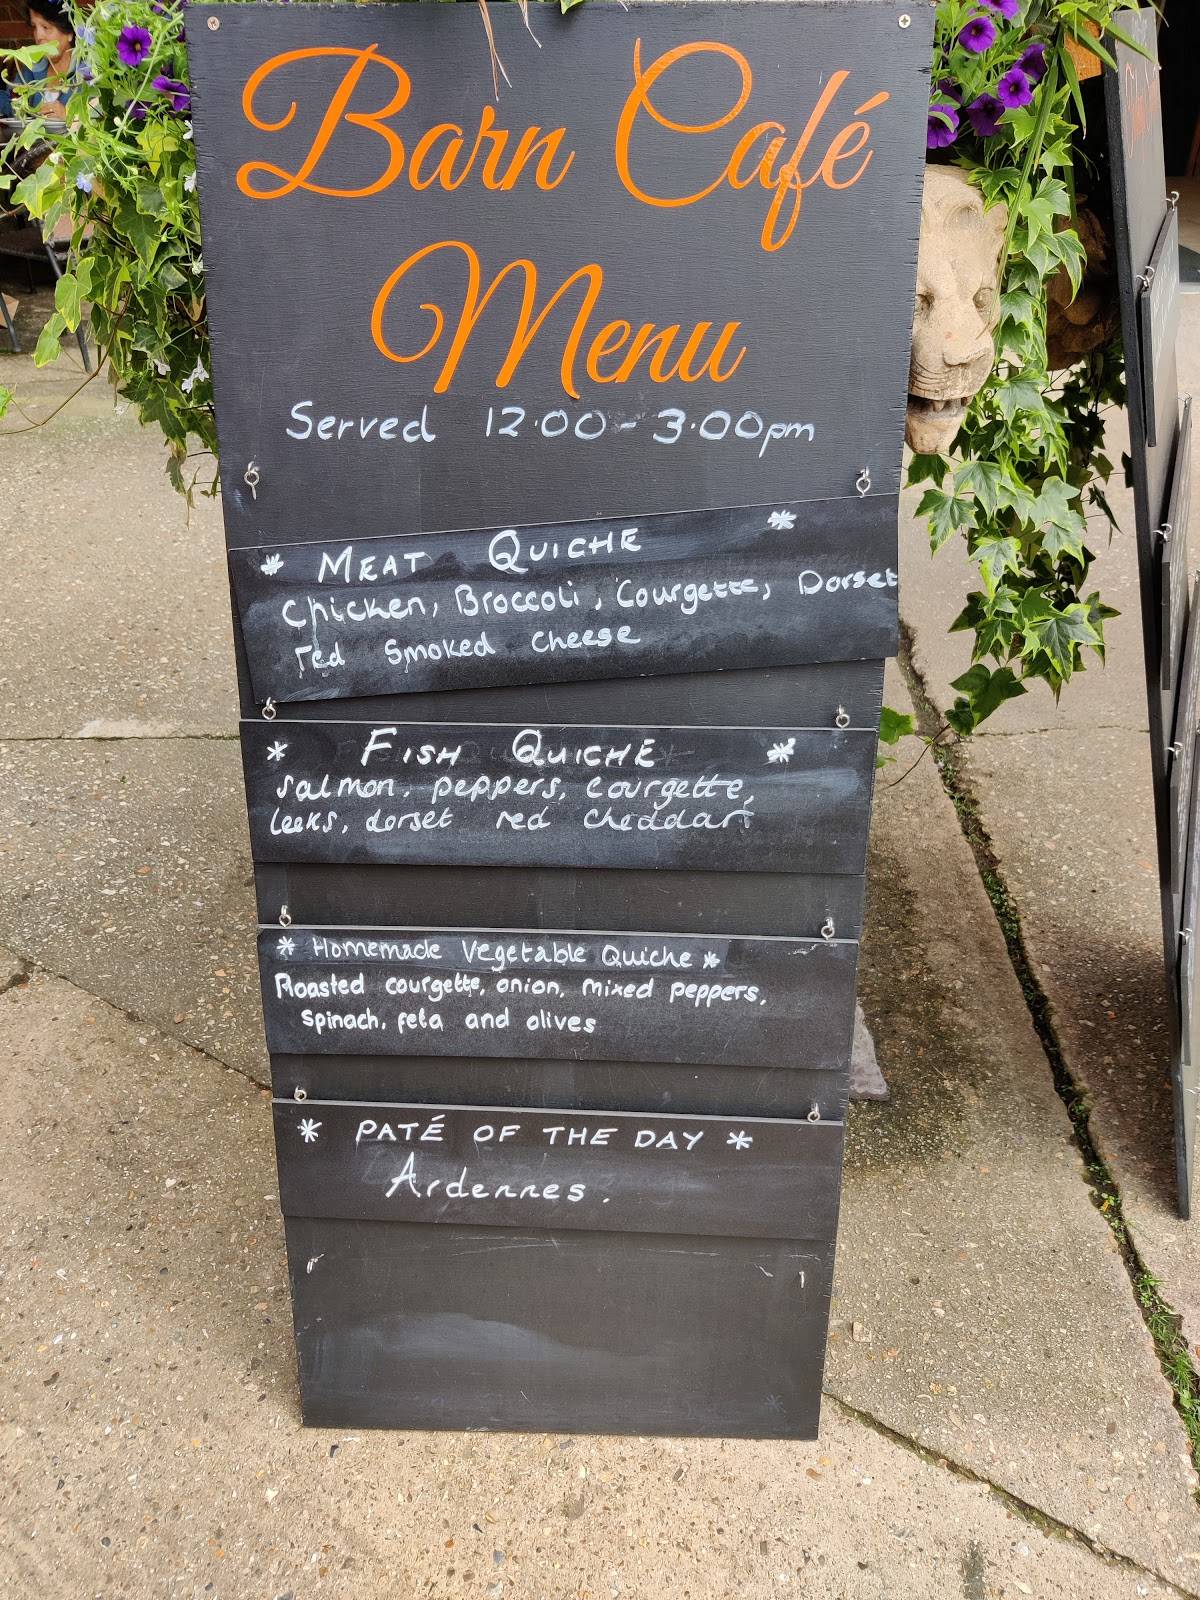 Barn Café
Menu
Served 12.00-3.00pm
* MEAT QUICHE *
Chicken, Broccoli, Courgette, Dorset
red Smoked cheese
* FISH QUICHE *
Salmon, peppers, courgette,
leeks, dorset red cheddar
* Homemade Vegetable Quiche *
Roasted courgette, onion, mixed peppers,
Spinach, feta and olives
* PATÉ OF THE DAY *
Ardennes.